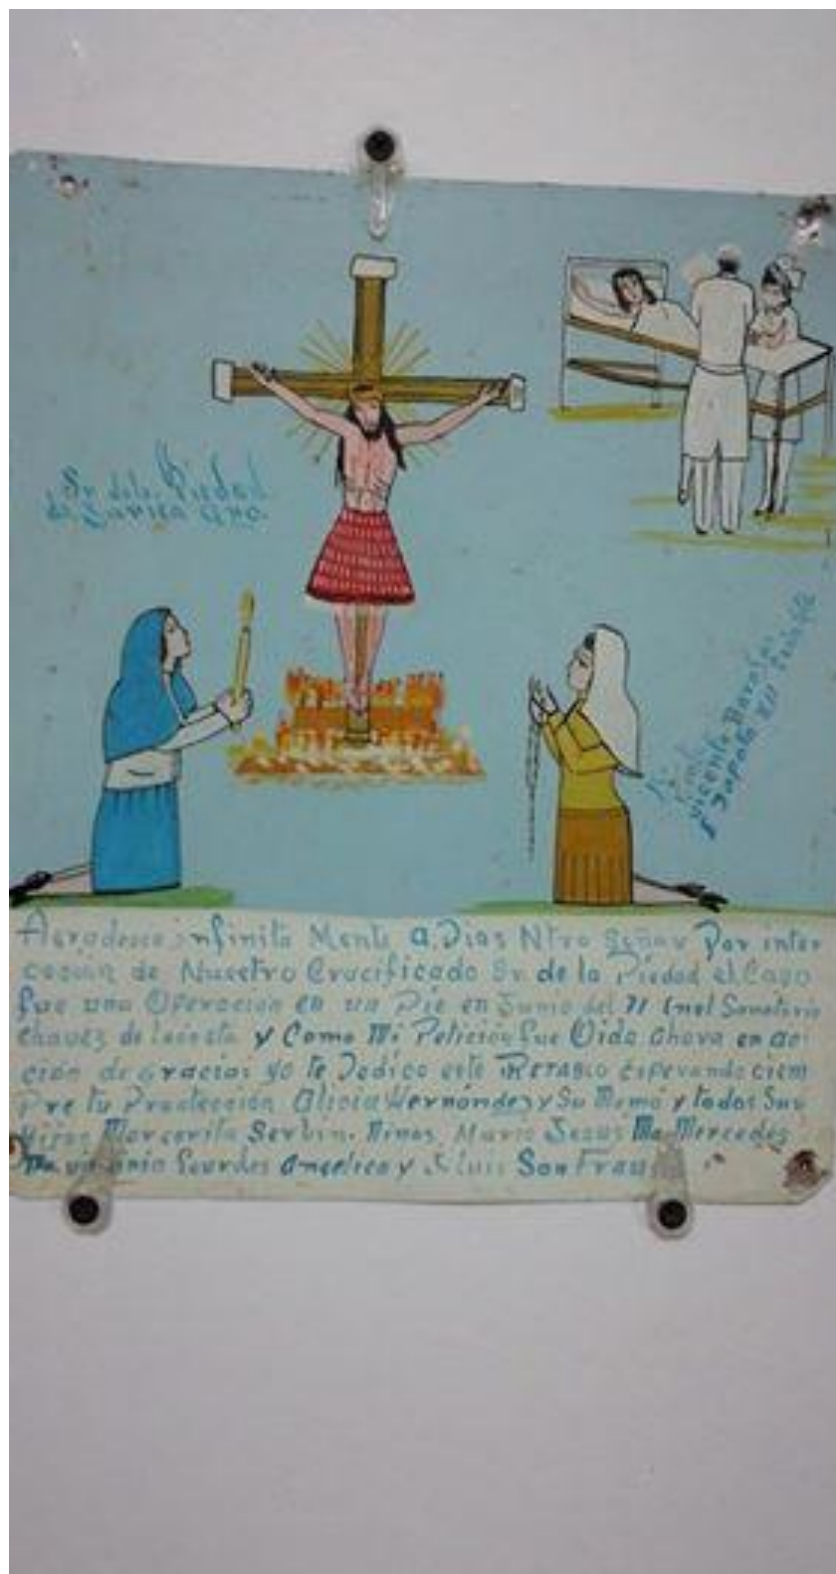 Sr. de la Piedad
de
Vicente Barajas
Zapata
Agradesco infinita Mente a Dios Ntro Señor Por inter
cesión de Nuestro Crucificado Sr. de la Piedad el Caso
fue una Operacion en un Pie en Junio del 71 Enel Sanatorio
chavez de y Como Mi Petición fue Oida ahora en ac-
ción de gracias yo te Dedico este RETABLO esperando ciem
Pre tu Proteccion Alicia Hernández y Su Mamá y todos Sus
Hijos Margarita Serbin. Ninos Mario Jesus Ma Mercedes
Lourdes Angelica y J Luis San